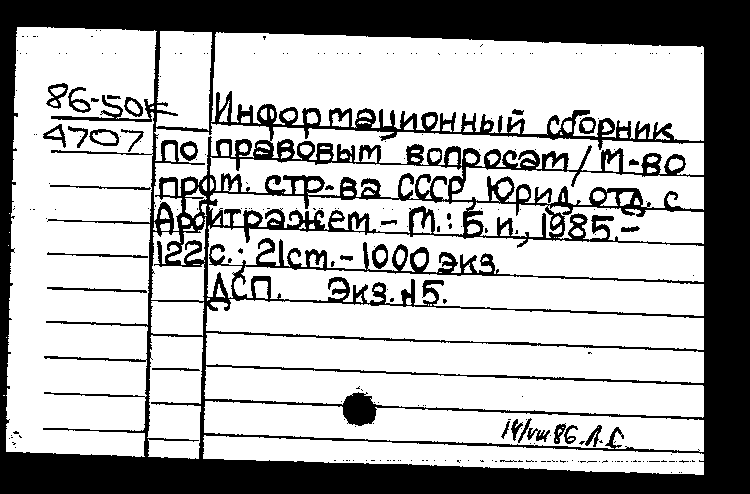 86-50к
4707
Информационный сборник
по правовым вопросам / М-во
пром. стр-ва СССР, Юрид. отд. с
Арбитражем. – М.: Б.и., 1985. –
122 с.; 21 см. – 1000 экз.
ДСП. Экз. №5.
14/VIII 86. Л.С.